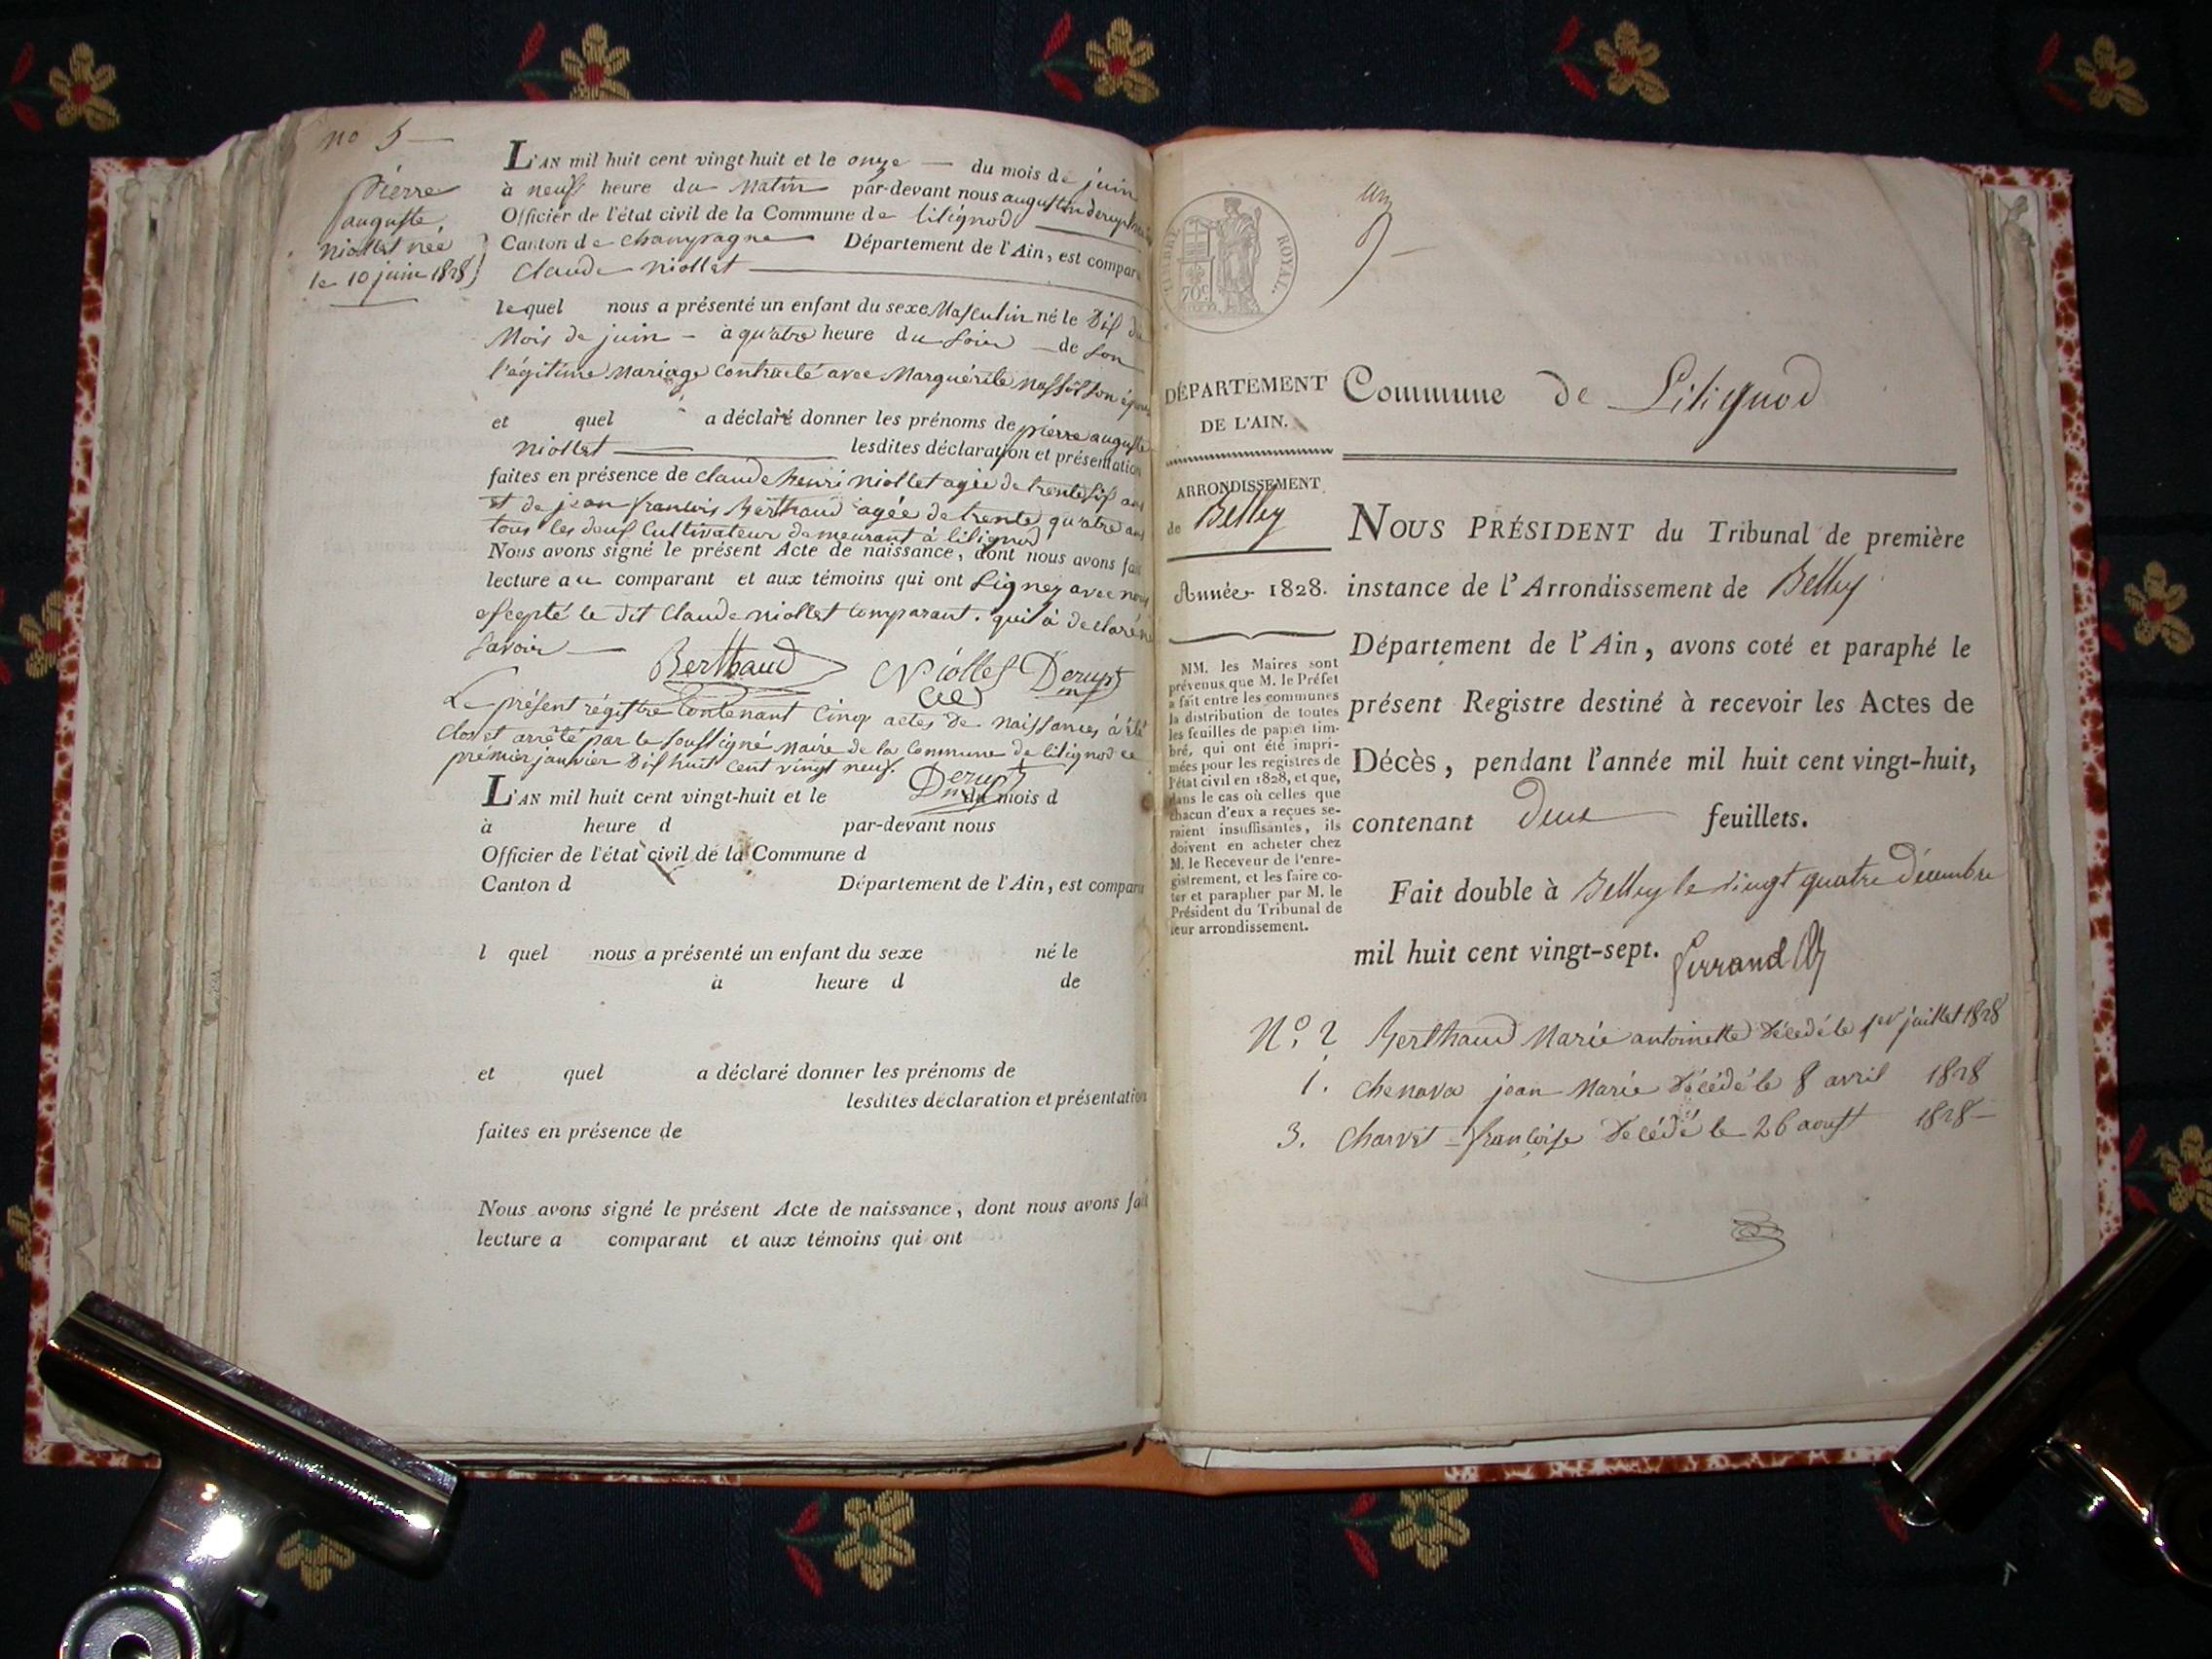 no 5 —
pierre
auguste
niollet née
le 10 juin 1828
L'AN mil huit cent vingt huit et le onze — du mois de juin
à neuf heure du Matin par-devant nous augustin
Officier de l'état civil de la Commune de lilignod
Canton de champagne Département de l'Ain, est compar
Claude niollet
lequel nous a présenté un enfant du sexe Masculin né le Dix du
Mois de juin - à quatre heure du Soir — de Son
légitime Mariage Contracté avec Marguérite
et quel a déclaré donner les prénoms de pierre auguste
niollet lesdites déclaration et présentation
faites en présence de claude henri niollet agée de trente six ans
et de jean francois Berthaud agée de trente quatre ans
tous les deux Cultivateur demeurant à lilignod
Nous avons signé le présent Acte de naissance, dont nous avons fait
lecture au comparant et aux témoins qui ont Signez avec nous
excepté le dit Claude niollet Comparant. qui à declaré ne
Savoir —
Berthaud Niollet Derupt
Le présent régistre Contenant Cinq actes de naissances à été
Clos et arrêté par le Soussigné Maire de la Commune de lilignod ce
prémier janvier Dix huit Cent vingt neuf.
Derupt
L'AN mil huit cent vingt-huit et le du mois d
à heure d par-devant nous
Officier de l'état civil de la Commune d
Canton d Département de l'Ain, est comparu
l quel nous a présenté un enfant du sexe né le
à heure d de
et quel a déclaré donner les prénoms de
lesdites déclaration et présentation
faites en présence de
Nous avons signé le présent Acte de naissance, dont nous avons fait
lecture a comparant et aux témoins qui ont
un
TIMBRE ROYAL.
70c
DÉPARTEMENT
DE L'AIN.
ARRONDISSEMENT
de Belley
Année 1828.
MM. les Maires sont
prévenus que M. le Préfet
a fait entre les communes
la distribution de toutes
les feuilles de papier tim-
bré, qui ont été impri-
mées pour les registres de
l'état civil en 1828, et que,
dans le cas où celles que
chacun d'eux a reçues se-
raient insuffisantes, ils
doivent en acheter chez
M. le Receveur de l'enre-
gistrement, et les faire co-
ter et parapher par M. le
Président du Tribunal de
leur arrondissement.
Commune de Lilignod
NOUS PRÉSIDENT du Tribunal de première
instance de l'Arrondissement de Belley
Département de l'Ain, avons coté et paraphé le
présent Registre destiné à recevoir les Actes de
Décès, pendant l'année mil huit cent vingt-huit,
contenant deux feuillets.
Fait double à Belley le vingt quatre décembre
mil huit cent vingt-sept.
N.o 2 Berthaud Marie antoinette décédé le 1er juillet 1828
1. chenava jean Marie Décédé le 8 avril 1828
3. Charvet - françoise Décédé le 26 aoust 1828 —